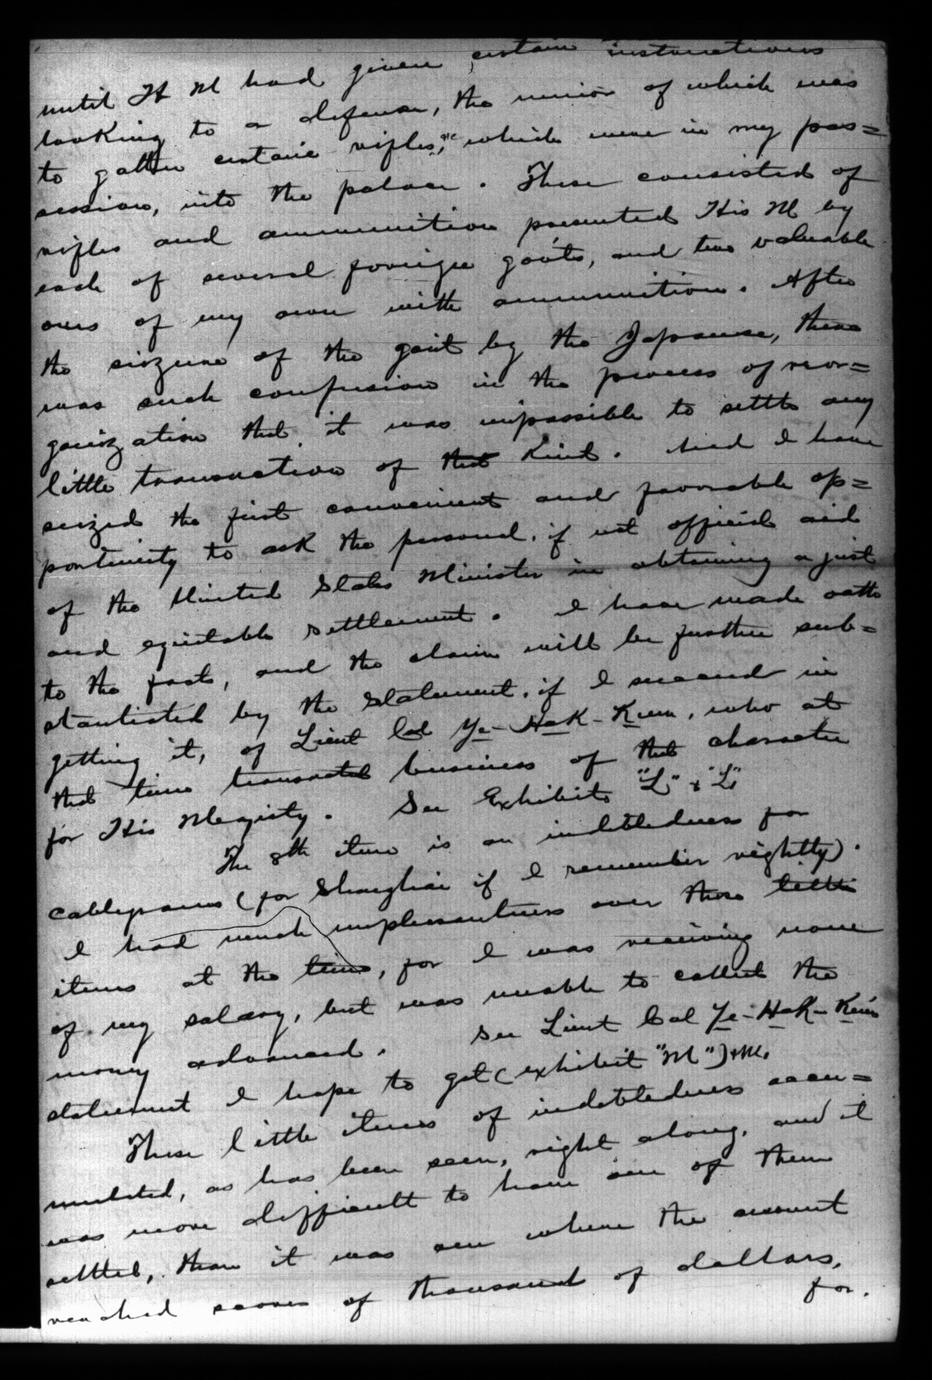 until H M had given certain instructions
looking to a defense, the minor of which was
to gather certain rifles, &c which were in my pos=
session, into the palace. These consisted of
rifles and ammunition presented His M by
each of several foreign gov'ts, and two valuable
ones of my own with ammunition. After
the seizure of the gov't by the Japanese, there
was such confusion in the process of reor=
ganization that it was impossible to settle any
little transaction of that kind. And I have
seized the first convenient and favorable op=
portunity to ask the personal, if not official aid
of the United States Minister in obtaining a just
and equitable settlement. I have made oath
to the facts, and the claim will be further sub=
stantiated by the statement, if I succeed in
getting it, of Lieut Col Ye-Hak-Keun, who at
that time transacted business of that character
for His Majesty. See Exhibits "L" & "L"
The 8th item is an indebtedness for
cablegrams (for Shanghai if I remember rightly).
I had much unpleasantness over these little
items at the time, for I was receiving none
of my salary, but was unable to collect the
money advanced. See Lieut Col Ye-Hak-Keun's
statement I hope to get (exhibit "M")
These little items of indebtedness accu=
mulated, as has been seen, right along, and it
was more difficult to have one of them
settled, than it was one where the amount
reached scores of thousand of dollars,
for.